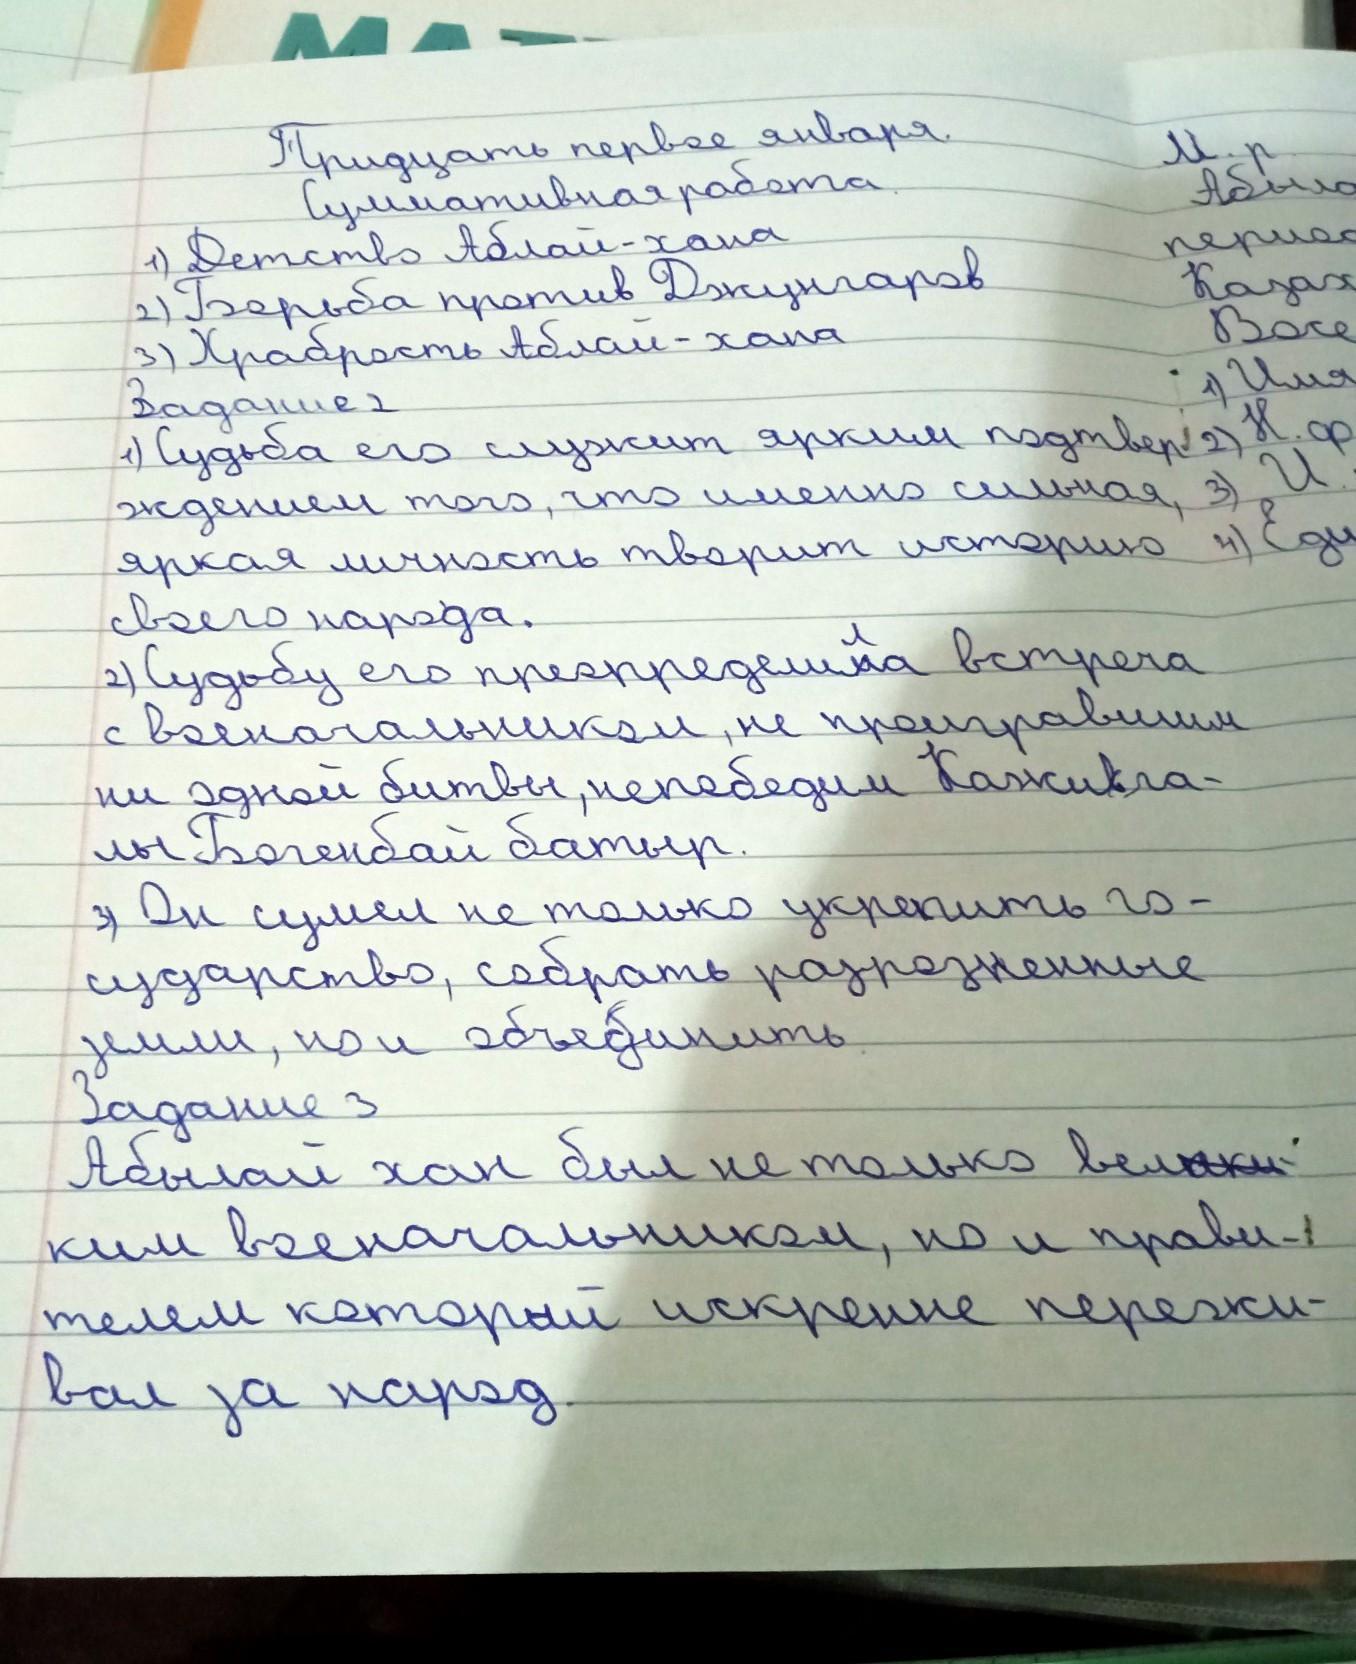 МАТ
Тридцать первое января.
Суммативная работа.
1) Детство Аблай-хана
2) Борьба против Джунгаров
3) Храбрость Аблай-хана
Задание 2
1) Судьба его служит ярким подтвер
ждением того, что именно сильная,
яркая личность творит историю
своего народа.
2) Судьбу его преопределила встреча
с военачальником, не проигравшим
ни одной битвы, непобедим Канжига-
лы Богенбай батыр.
3) Он сумел не только укрепить го-
сударство, собрать разрозненные
земли, но и объединить
Задание 3
Абылай хан был не только вели
ким военачальником, но и прави-
телем который искренне пережи-
вал за народ.
М. р
Абыла
период
Казах
Восе
1) Имя
2) Н. ф
3) И.
4) Еди